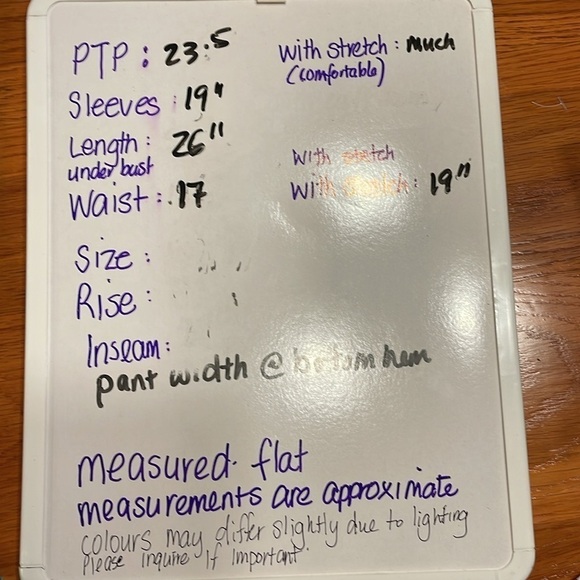 PTP : 23.5 With stretch : Much
(comfortable)
Sleeves : 19"
Length : 26"
under bust With stretch
Waist : 17 With stretch : 19"
Size :
Rise :
Inseam :
pant width @ bottom hem
measured flat
measurements are approximate
colours may differ slightly due to lighting
Please inquire if important